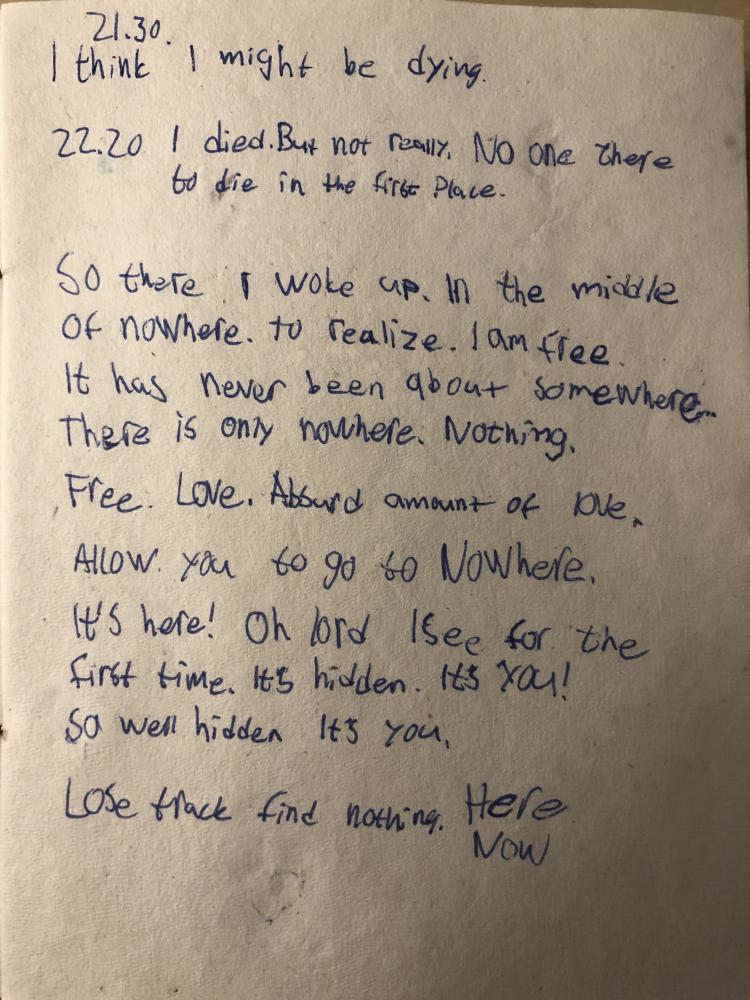 21.30.
I think I might be dying.
22.20 I died. But not really. No one there
to die in the first Place.
So there I woke up. In the middle
Of nowhere. to realize. I am free.
It has never been about somewhere...
There is only nowhere. Nothing.
Free. Love. Absurd amount of love.
Allow. you to go to Nowhere.
It's here! Oh lord I see for the
first time. It's hidden. It's you!
So well hidden It's you.
Lose track find nothing. Here
Now